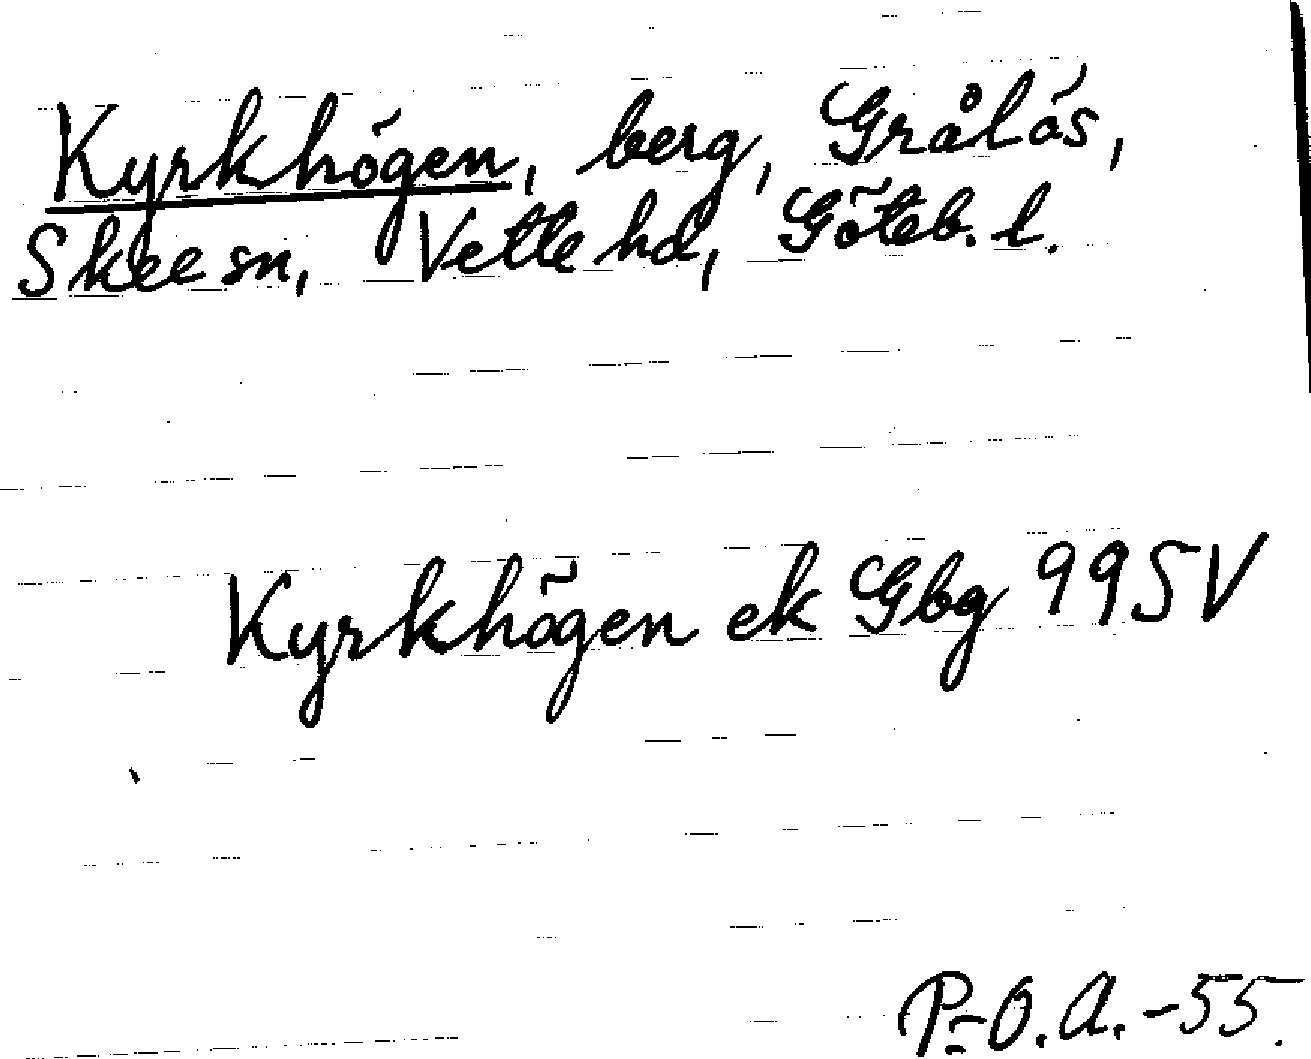 Kyrkhögen, berg, Grålös,
Skee sn, Vette hd, Göteb. l.
Kyrkhögen ek Gbg 99SV
P-O.A.-55.